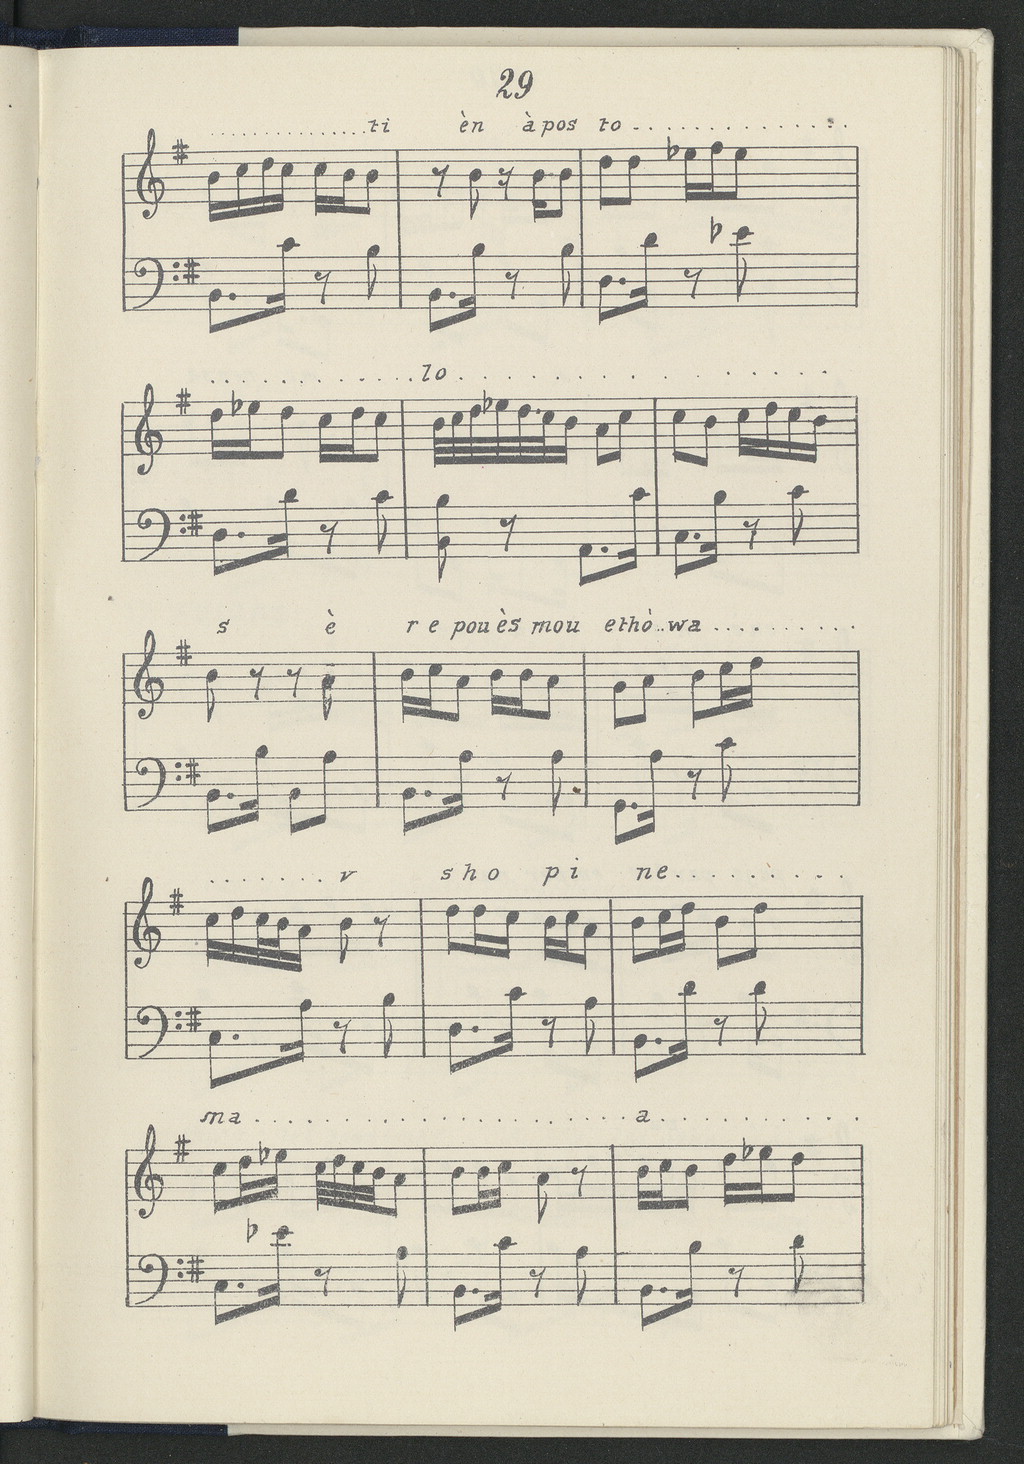 29
..............ti èn àpos to.............
............lo................
s è re pouès mou ethò..wa..........
.......v sho pi ne..........
ma......................a..........